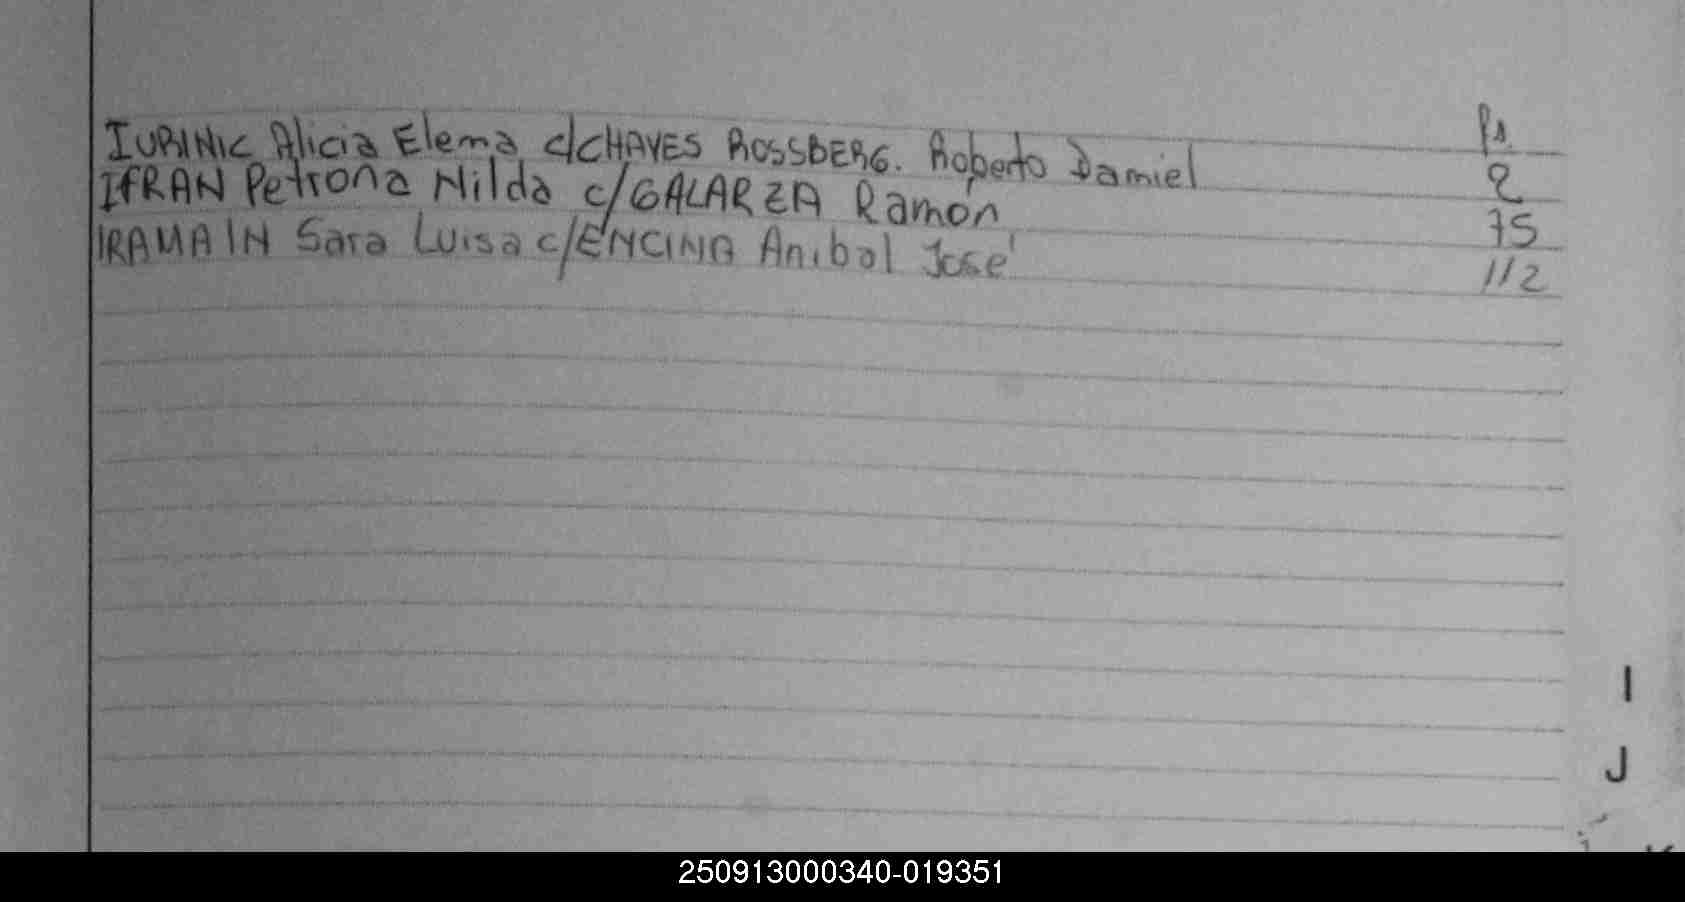 Ps.
IURINIC Alicia Elema c/CHAVES ROSSBERG. Roberto Damiel 2
IFRAN Petrona Nilda c/GALARZA Ramón 75
IRAMAIN Sara Luisa c/ENCINA Anibal José 112
I
J
250913000340-019351